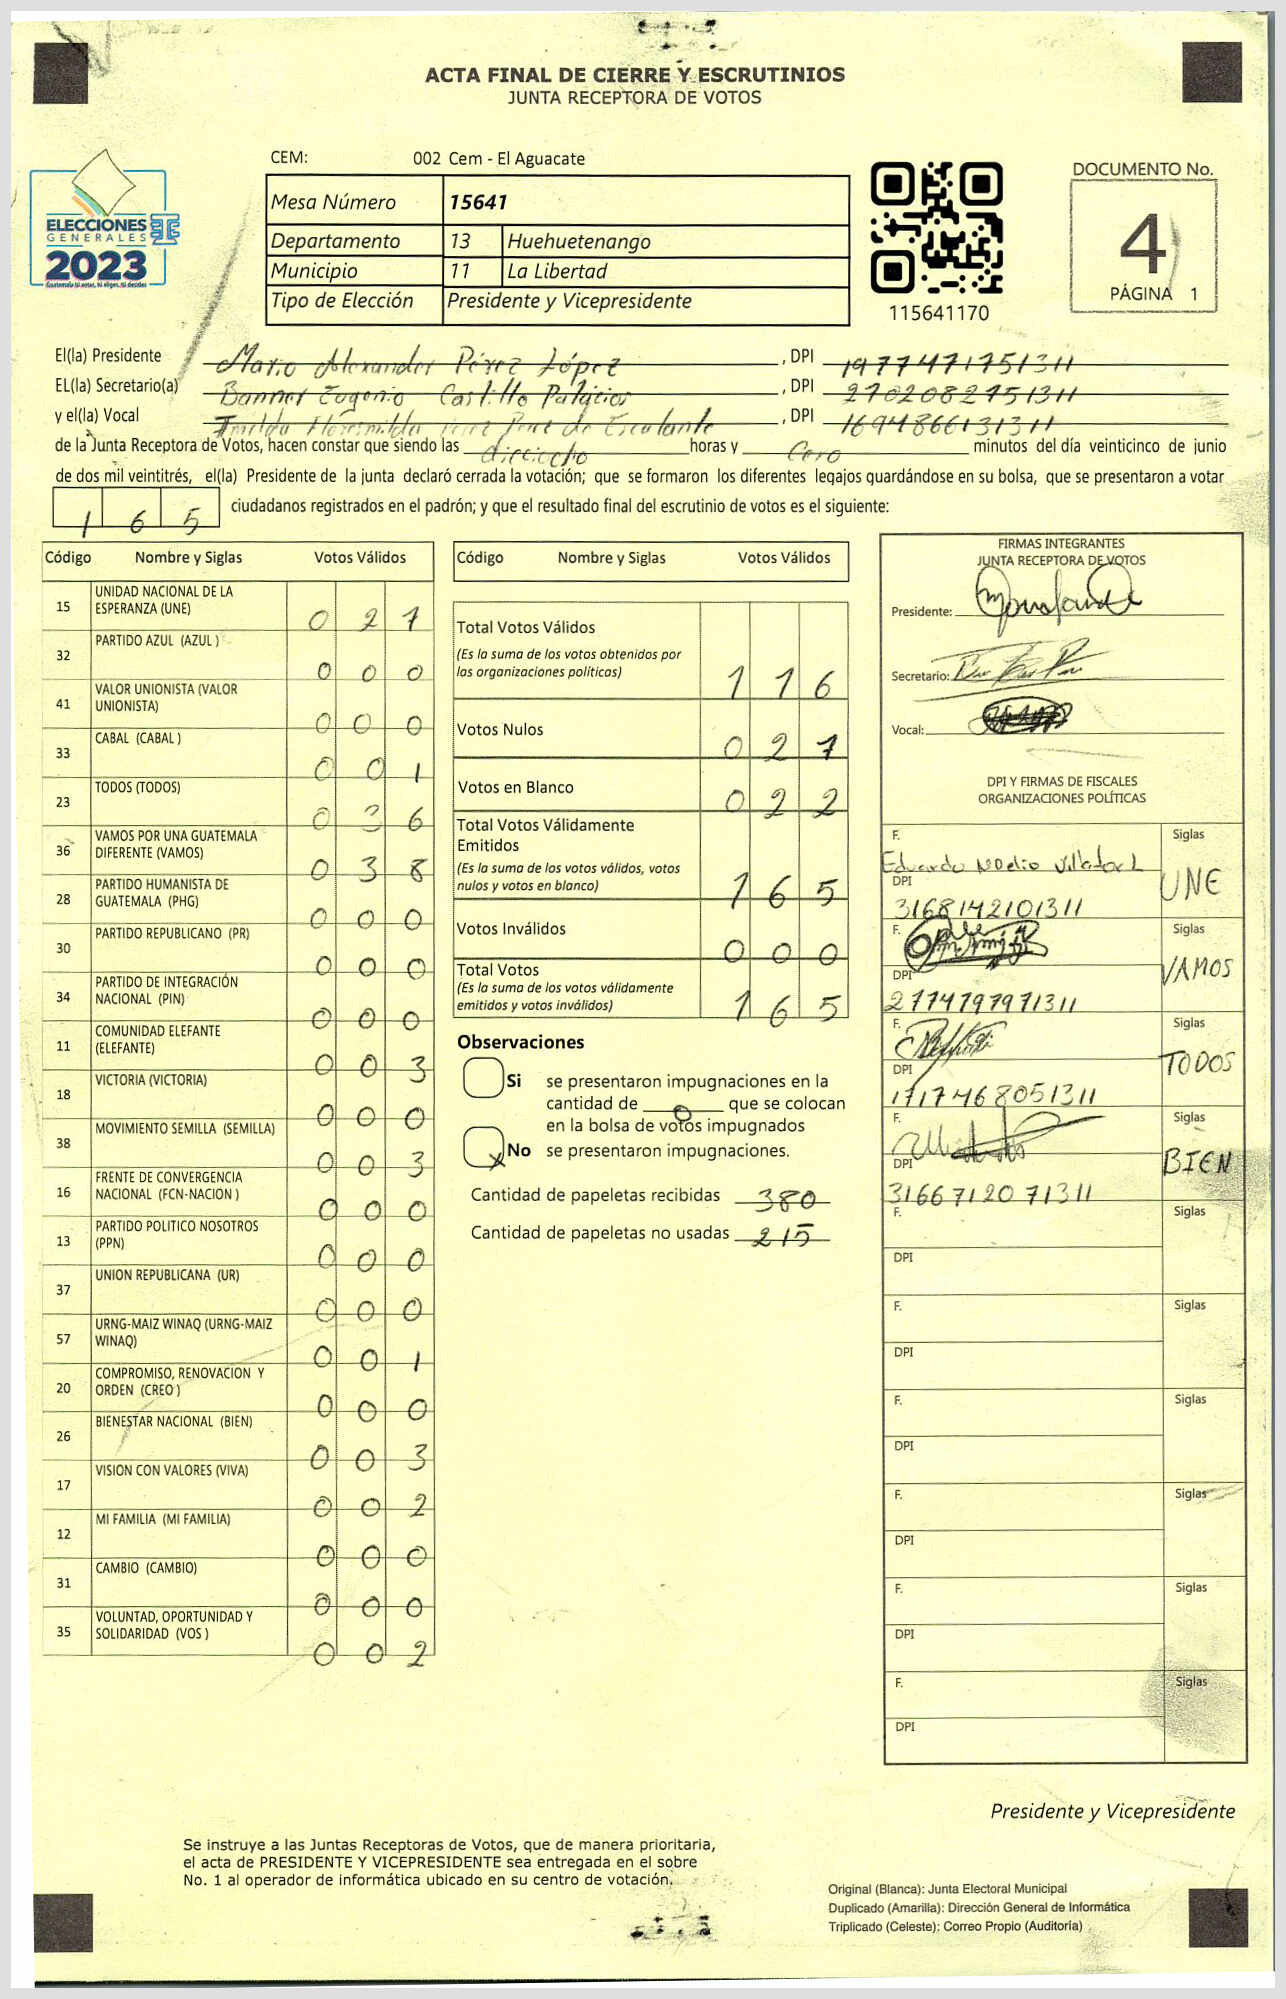 ACTA FINAL DE CIERRE Y ESCRUTINIOS
JUNTA RECEPTORA DE VOTOS
CEM: 002 Cem - El Aguacate
ELECCIONES
GENERALES
2023
Guatemala
Mesa Número 15641
Departamento 13 Huehuetenango
Municipio 11 La Libertad
Tipo de Elección Presidente y Vicepresidente
115641170
DOCUMENTO No.
4
PÁGINA 1
El(la) Presidente Mario Alexander Pérez López , DPI 1977471751311
EL(la) Secretario(a) Banner Eugenio Castillo Palacios , DPI 2702082751311
y el(la) Vocal Pérez de Escalante , DPI 1694866131311
de la Junta Receptora de Votos, hacen constar que siendo las dieciocho horas y Cero minutos del día veinticinco de junio
de dos mil veintitrés, el(la) Presidente de la junta declaró cerrada la votación; que se formaron los diferentes legajos guardándose en su bolsa, que se presentaron a votar
1 6 5 ciudadanos registrados en el padrón; y que el resultado final del escrutinio de votos es el siguiente:
Código Nombre y Siglas Votos Válidos
15 UNIDAD NACIONAL DE LA ESPERANZA (UNE) 0 2 7
32 PARTIDO AZUL (AZUL ) 0 0 0
41 VALOR UNIONISTA (VALOR UNIONISTA) 0 0 0
33 CABAL (CABAL ) 0 0 1
23 TODOS (TODOS) 0 3 6
36 VAMOS POR UNA GUATEMALA DIFERENTE (VAMOS) 0 3 8
28 PARTIDO HUMANISTA DE GUATEMALA (PHG) 0 0 0
30 PARTIDO REPUBLICANO (PR) 0 0 0
34 PARTIDO DE INTEGRACIÓN NACIONAL (PIN) 0 0 0
11 COMUNIDAD ELEFANTE (ELEFANTE) 0 0 3
18 VICTORIA (VICTORIA) 0 0 0
38 MOVIMIENTO SEMILLA (SEMILLA) 0 0 3
16 FRENTE DE CONVERGENCIA NACIONAL (FCN-NACION ) 0 0 0
13 PARTIDO POLITICO NOSOTROS (PPN) 0 0 0
37 UNION REPUBLICANA (UR) 0 0 0
57 URNG-MAIZ WINAQ (URNG-MAIZ WINAQ) 0 0 1
20 COMPROMISO, RENOVACION Y ORDEN (CREO ) 0 0 0
26 BIENESTAR NACIONAL (BIEN) 0 0 3
17 VISION CON VALORES (VIVA) 0 0 2
12 MI FAMILIA (MI FAMILIA) 0 0 0
31 CAMBIO (CAMBIO) 0 0 0
35 VOLUNTAD, OPORTUNIDAD Y SOLIDARIDAD (VOS ) 0 0 2
Código Nombre y Siglas Votos Válidos
Total Votos Válidos
(Es la suma de los votos obtenidos por
las organizaciones políticas) 1 1 6
Votos Nulos 0 2 7
Votos en Blanco 0 2 2
Total Votos Válidamente
Emitidos
(Es la suma de los votos válidos, votos
nulos y votos en blanco) 1 6 5
Votos Inválidos 0 0 0
Total Votos
(Es la suma de los votos válidamente
emitidos y votos inválidos) 1 6 5
Observaciones
Si se presentaron impugnaciones en la
cantidad de 0 que se colocan
en la bolsa de votos impugnados
x No se presentaron impugnaciones.
Cantidad de papeletas recibidas 380
Cantidad de papeletas no usadas 215
FIRMAS INTEGRANTES
JUNTA RECEPTORA DE VOTOS
Presidente:
Secretario:
Vocal:
DPI Y FIRMAS DE FISCALES
ORGANIZACIONES POLÍTICAS
F. Siglas
Eduardo
DPI UNE
3168142101311
F. Siglas
DPI VAMOS
2774797971311
F. Siglas
DPI TODOS
1717468051311
F. Siglas
DPI BIEN
3166712071311
F. Siglas
DPI
F. Siglas
DPI
F. Siglas
DPI
F. Siglas
DPI
F. Siglas
DPI
F. Siglas
DPI
Presidente y Vicepresidente
Se instruye a las Juntas Receptoras de Votos, que de manera prioritaria,
el acta de PRESIDENTE Y VICEPRESIDENTE sea entregada en el sobre
No. 1 al operador de informática ubicado en su centro de votación.
Original (Blanca): Junta Electoral Municipal
Duplicado (Amarilla): Dirección General de Informática
Triplicado (Celeste): Correo Propio (Auditoría)